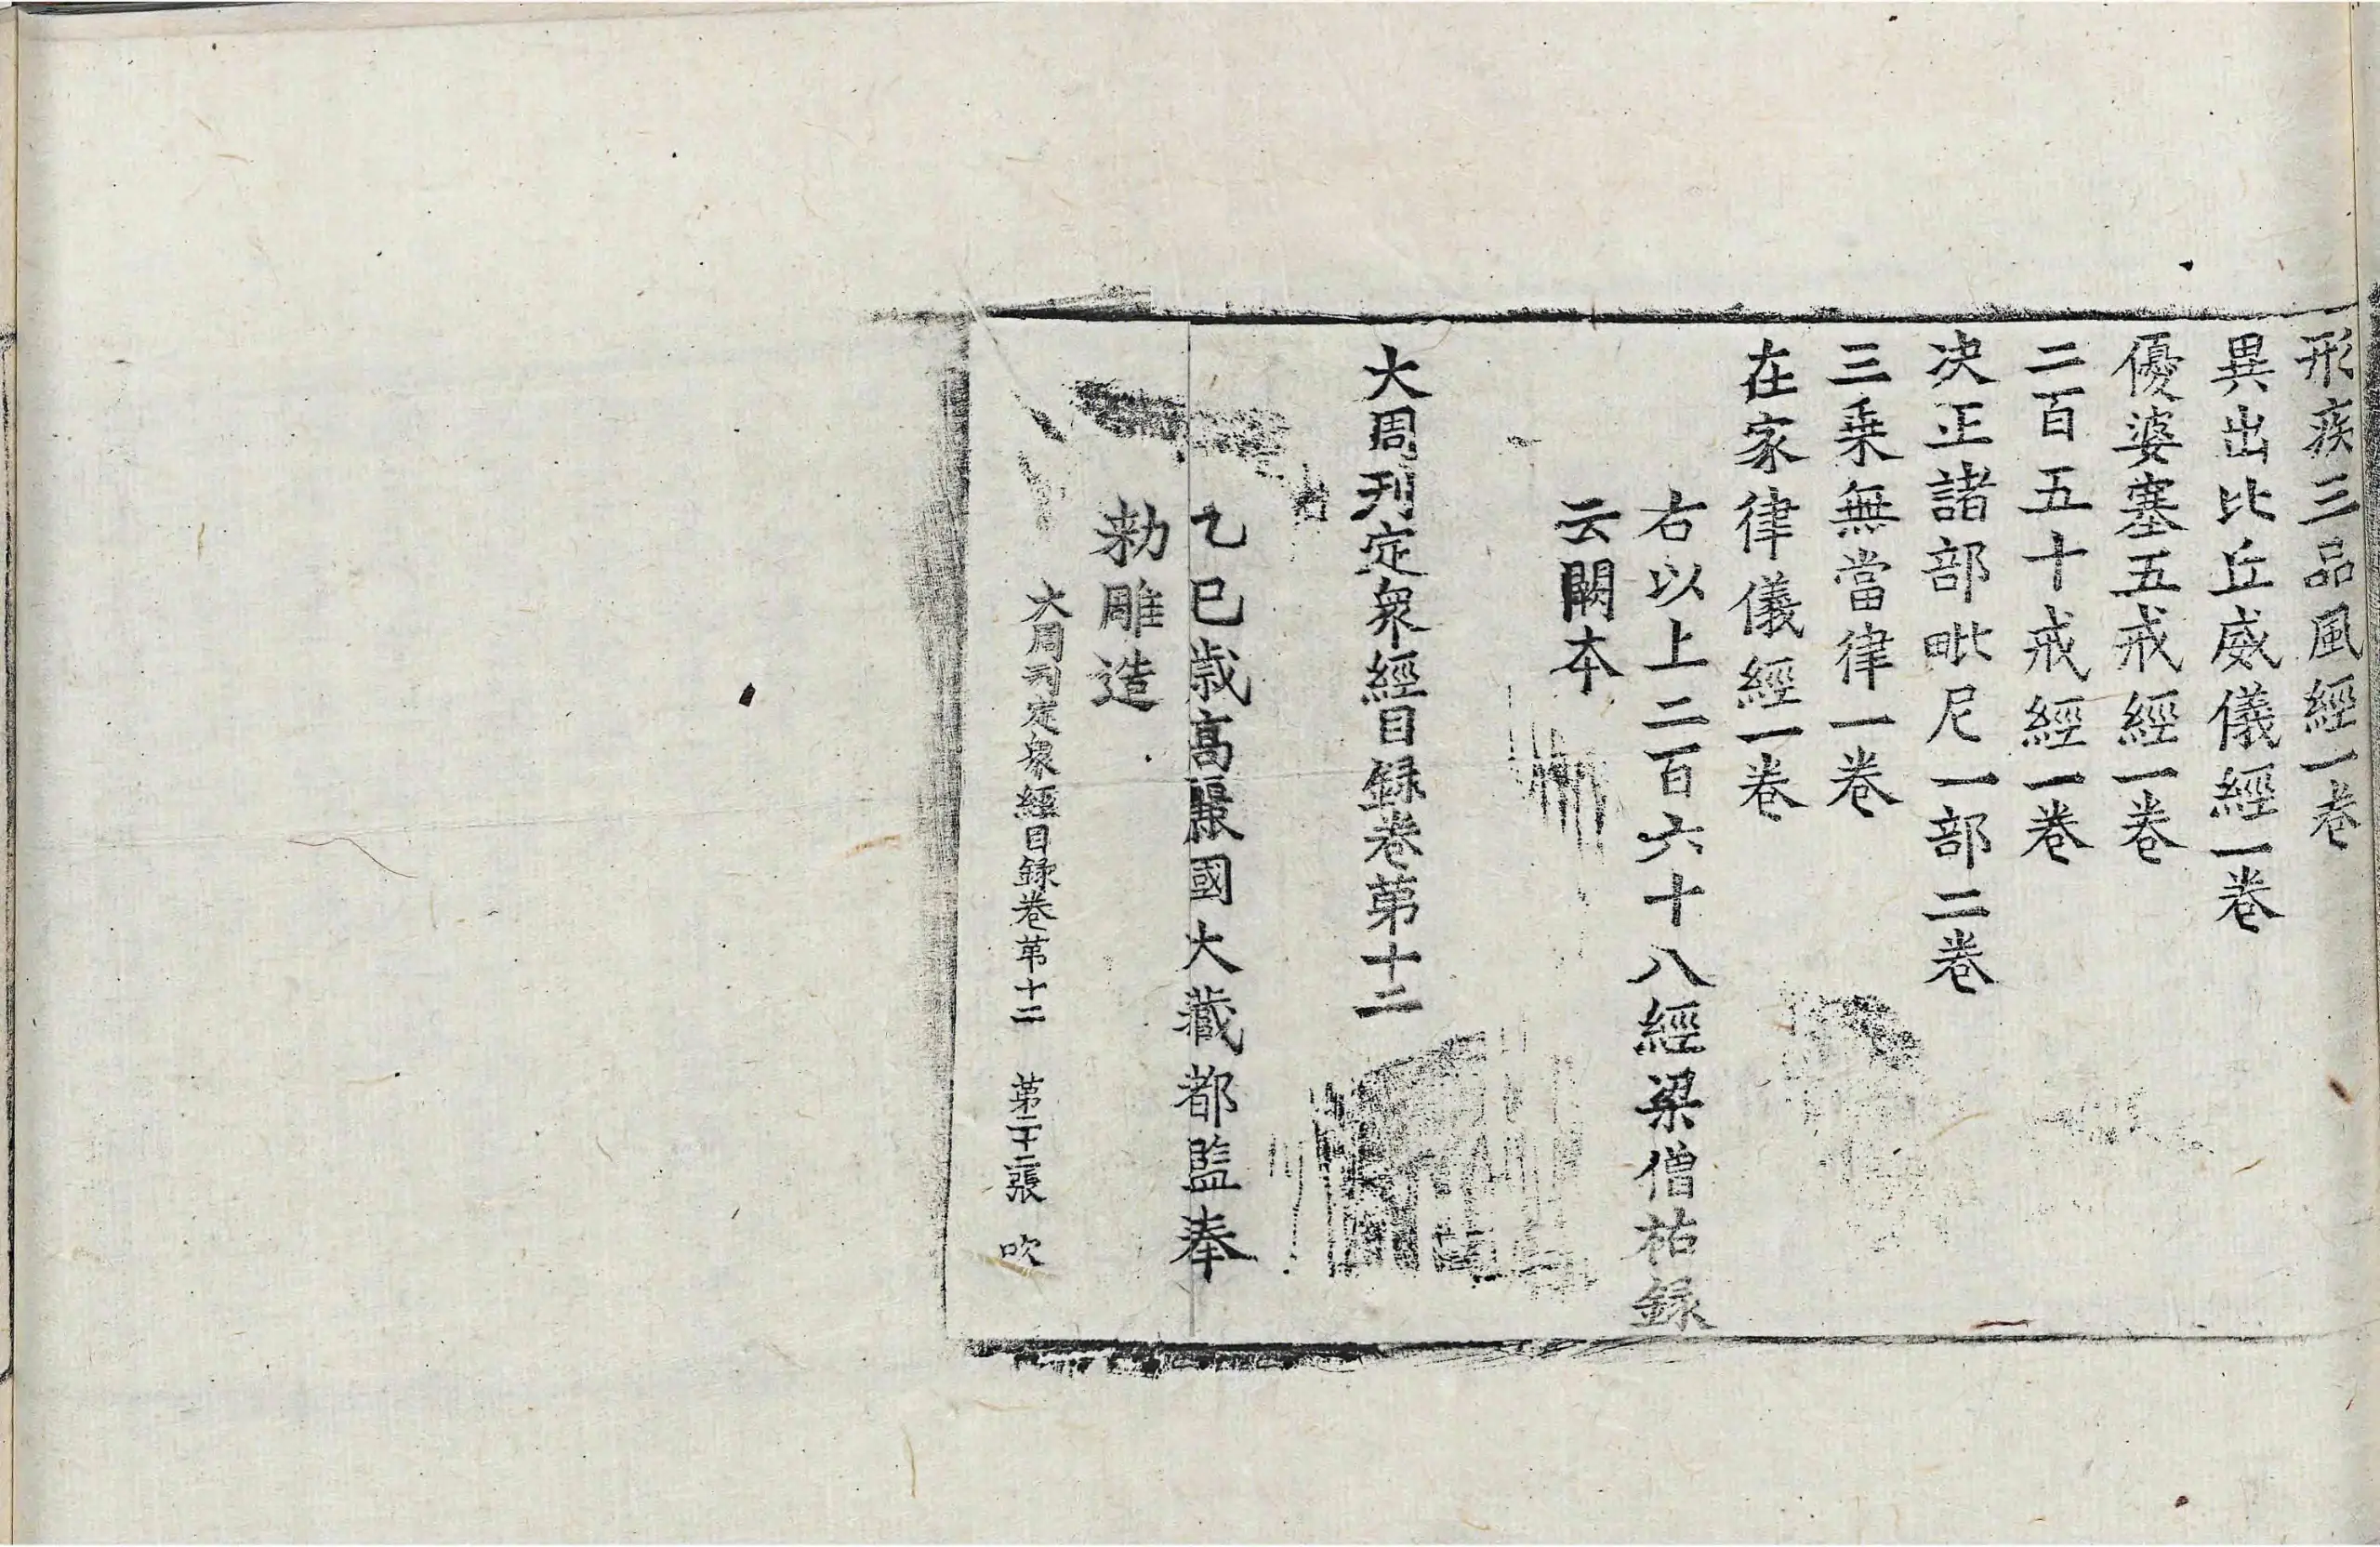 形疾三品風經一卷
異出比丘威儀經一卷
優婆塞五戒經一卷
二百五十戒經一卷
决正諸部毗尼一部二卷
三乗無當律一卷
在家律儀經一卷
右以上二百六十八經梁僧祐録
云闕夲
大周刊定衆經目録卷苐十二
乙巳歳高麗國大藏都監奉
勑雕造
大周刊定衆經目録卷苐十二 苐二十二張 吹